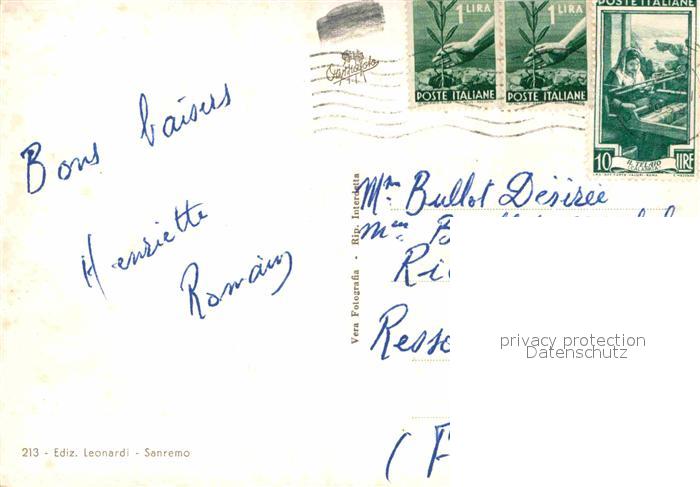 1 LIRA
1 LIRA
POSTE ITALIANE
POSTE ITALIANE
POSTE ITALIANE
IL TELAIO
10 LIRE
Bons baisers
Henriette
Romain
213 - Ediz. Leonardi - Sanremo
Vera Fotografia - Rip. Interdetta
Mr. Bullot Désirée
Ri
Resso
(F
privacy protection
Datenschutz